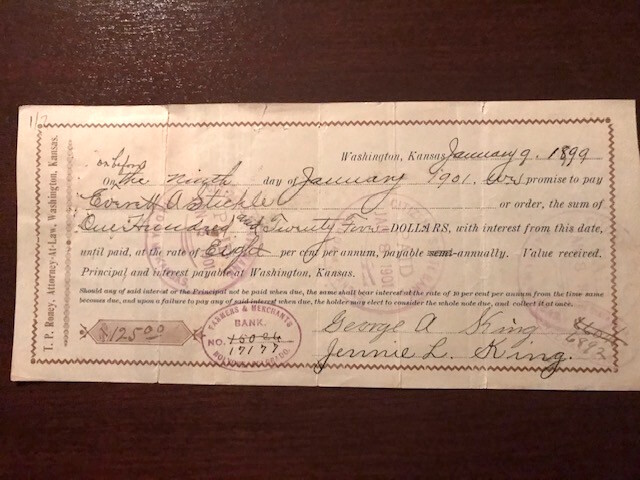 1/2
Washington, Kansas, January 9. 1899
on or before
On the ninth day of January 1901. we promise to pay
Everett A Stickle or order, the sum of
One Hundred and Twenty Five DOLLARS, with interest from this date,
until paid, at the rate of Eight per cent per annum, payable semi-annually. Value received.
Principal and interest payable at Washington, Kansas.
Should any of said interest or the Principal not be paid when due, the same shall bear interest at the rate of 10 per cent per annum from the time same
becomes due, and upon a failure to pay any of said interest when due, the holder may elect to consider the whole note due, and collect it at once.
$125.00
FARMERS & MERCHANTS
BANK.
NO. 15024
17177
BOULDER, COLORADO.
George A King
Jennie L. King.
6892
T. P. Roney, Attorney-At-Law, Washington, Kansas.
PAID
JAN 8 1901